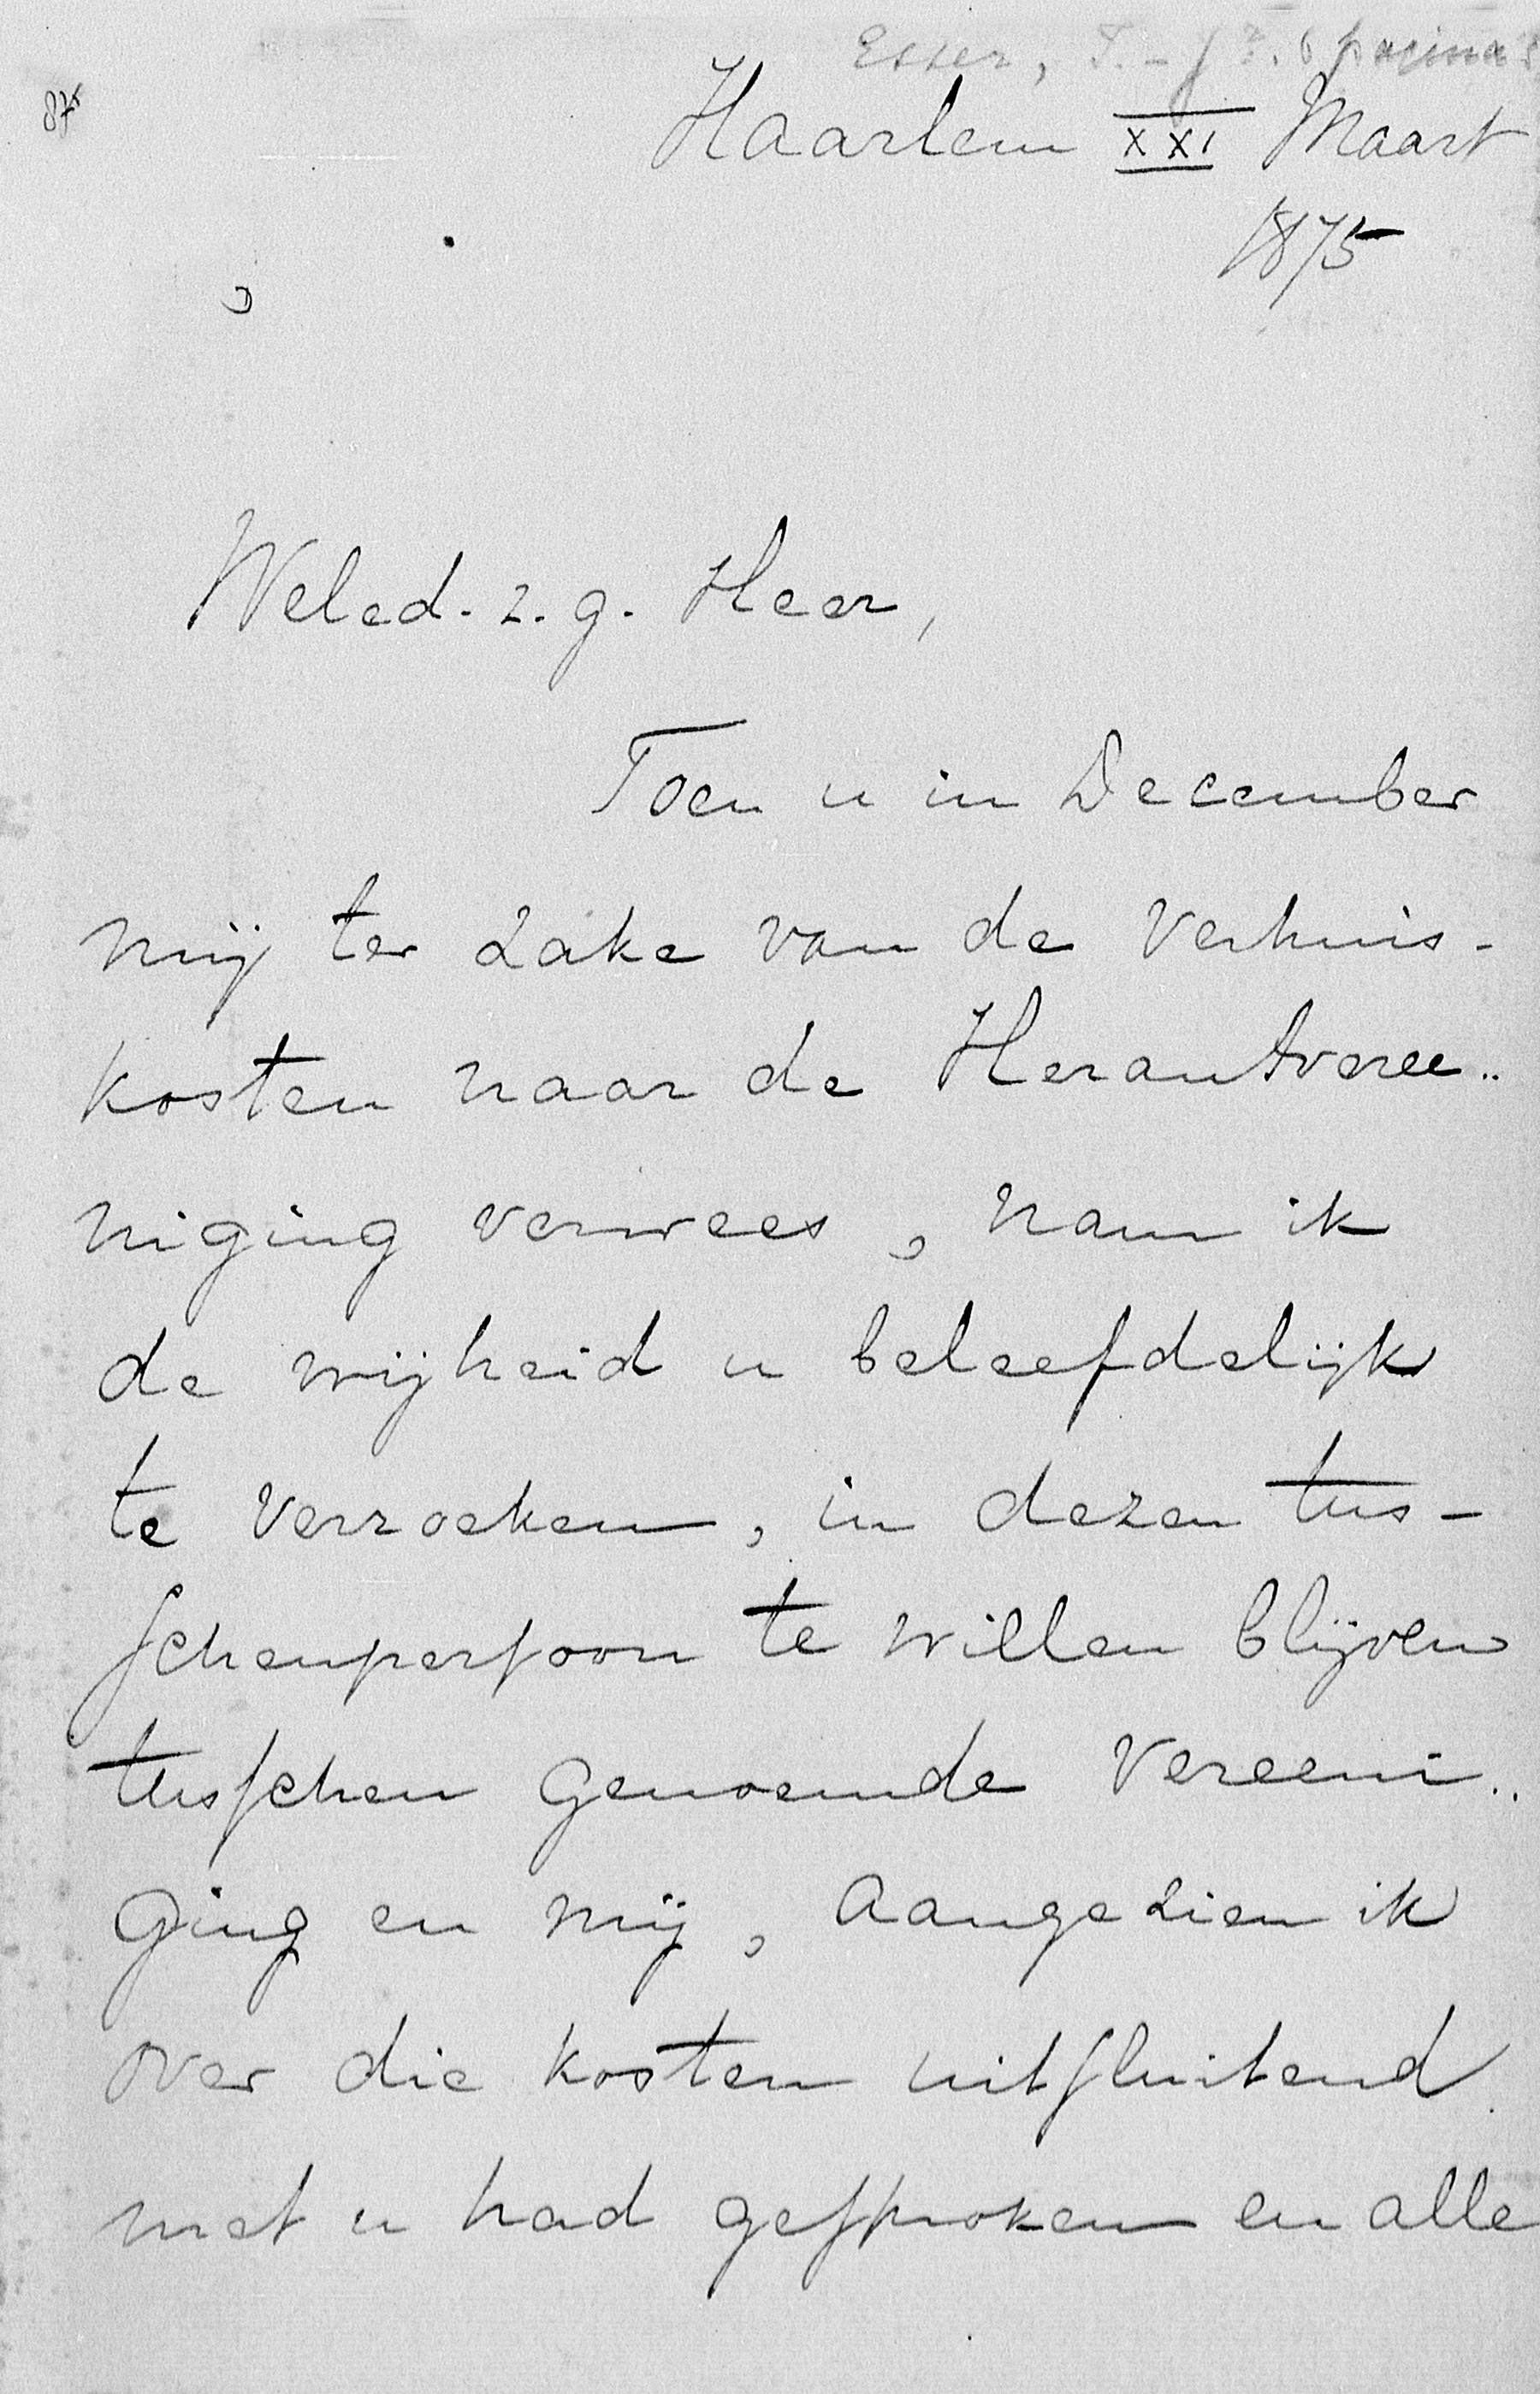 Esser, J. - 6 pagina's
Haarlem XXI Maart
1875
875
Weled. z. g. Heer,
Toen u in December
mij ter zake van de verhuis-
kosten naar de Herautveree..
niging verwees, nam ik
de vrijheid u beleefdelijk
te verzoeken, in dezen tus-
schenpersoon te willen blijven
tusschen genoemde Vereeni..
ging en mij, aangezien ik
over die kosten uitsluitend
met u had gesproken en alle